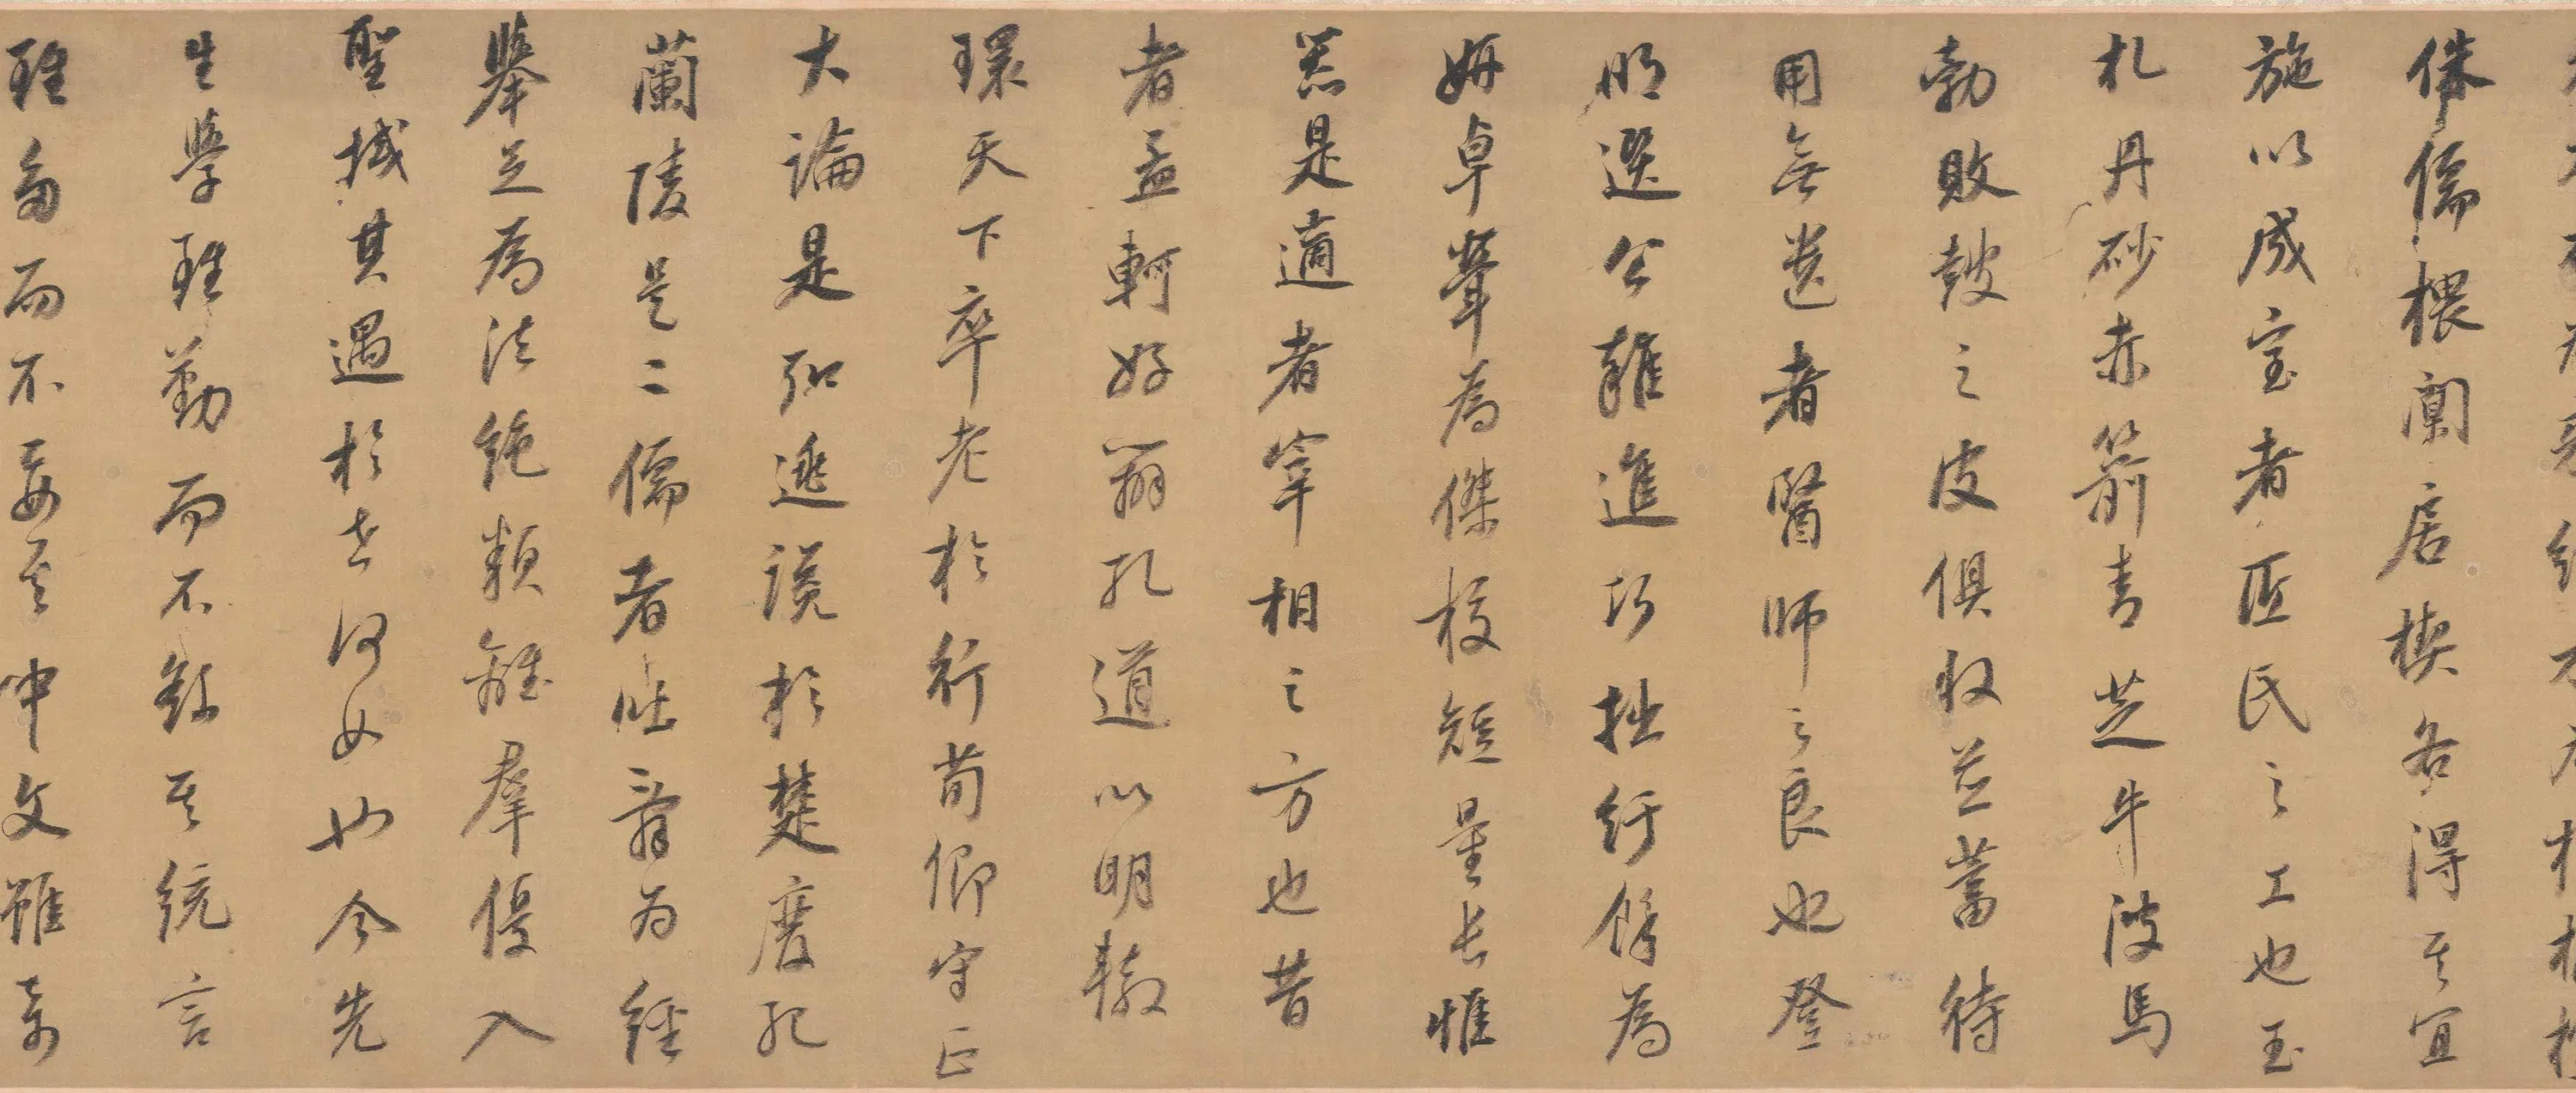 侏儒椳闑居楔各得其宜
施以成室者匠氏之工也玉
札丹砂赤箭青芝牛溲馬
勃敗鼓之皮俱收並蓄待
用無遺者醫師之良也登
明選公雜進巧拙紆餘為
妍卓犖為傑校短量長惟
器是適者宰相之方也昔
者孟軻好辯孔道以明轍
環天下卒老於行荀卿守正
大論是弘逃讒於楚廢死
蘭陵是二儒者吐辭為經
舉足為法絕類離羣優入
聖域其遇於世何如也今先
生學雖勤而不繇其統言
雖多而不要其中文雖奇